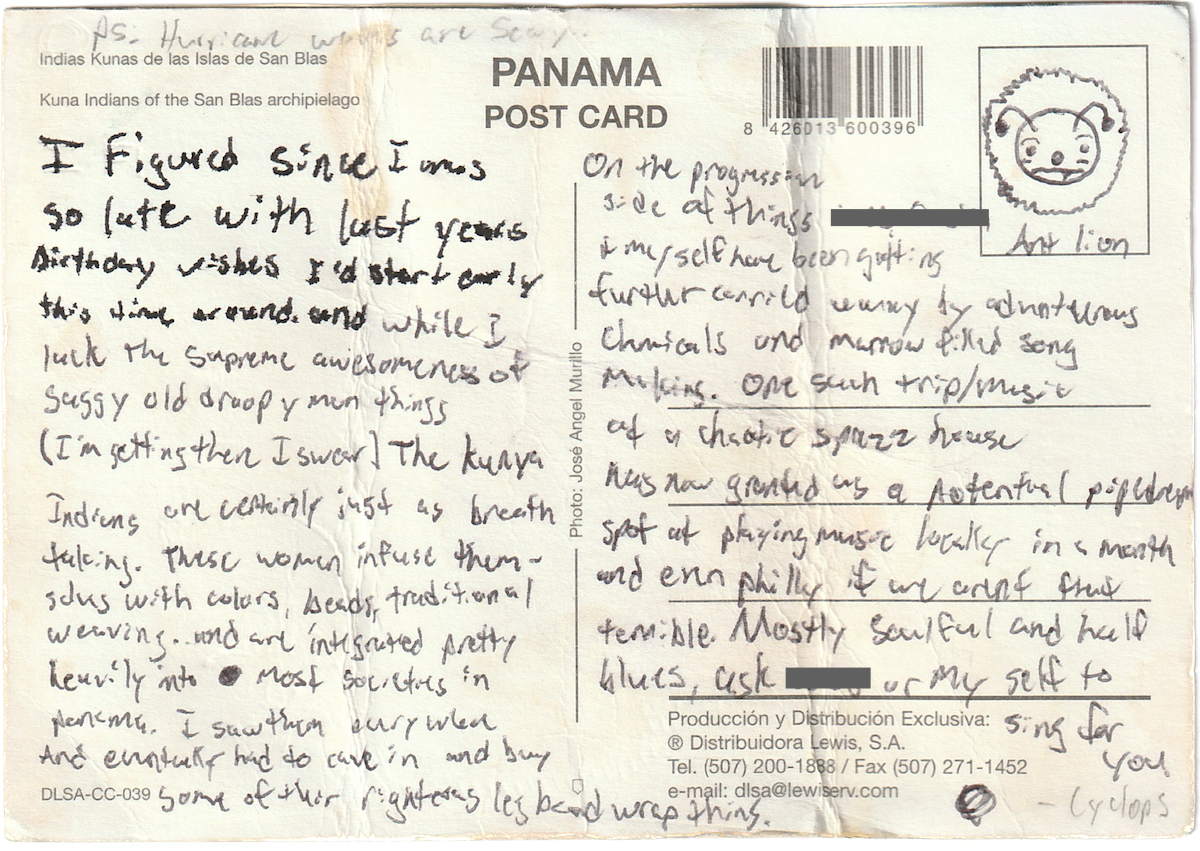 PS: Hurricane waves are scary.
Indias Kunas de las Islas de San Blas
Kuna Indians of the San Blas archipielago
PANAMA
POST CARD
8 426013 600396
Ant lion
I Figured since I was
so late with last years
Birthday wishes I'd start early
this time around. and while I
lack the supreme awesomeness of
saggy old droopy man things
(I'm getting there I swear) The Kunya
Indians are certainly just as breath
taking. These women infuse them-
selves with colors, beads, traditional
weaving.. and are integrated pretty
heavily into most societies in
panama. I saw them everywhere
And eventually had to cave in and buy
some of their righteous leg bead wrap things.
DLSA-CC-039
Photo: José Angel Murillo
On the progression
side of things
& myself have been getting
further carried away by adventurous
chemicals and marrow filled song
making. One such trip/music
at a chaotic spazz house
has now granted us a potential pipedream
spot at playing music locally in a month
and even philly if we arent that
terrible. Mostly soulful and half
blues, ask or my self to
sing for
you
- Cyclops
Producción y Distribución Exclusiva:
® Distribuidora Lewis, S.A.
Tel. (507) 200-1888 / Fax (507) 271-1452
e-mail: dlsa@lewiserv.com